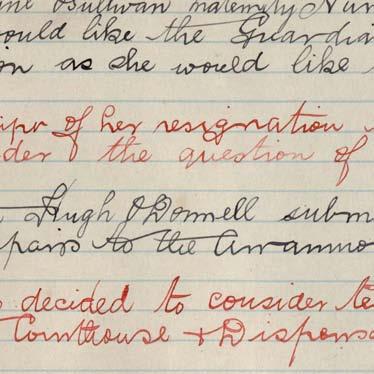 ine O'Sullivan maternity Nur
would like the Guardia
on as she would like
of her resignation
der the question of
Hugh O'Donnell subm
pairs to the Arranmo
decided to consider te
Courthouse & Dispensa